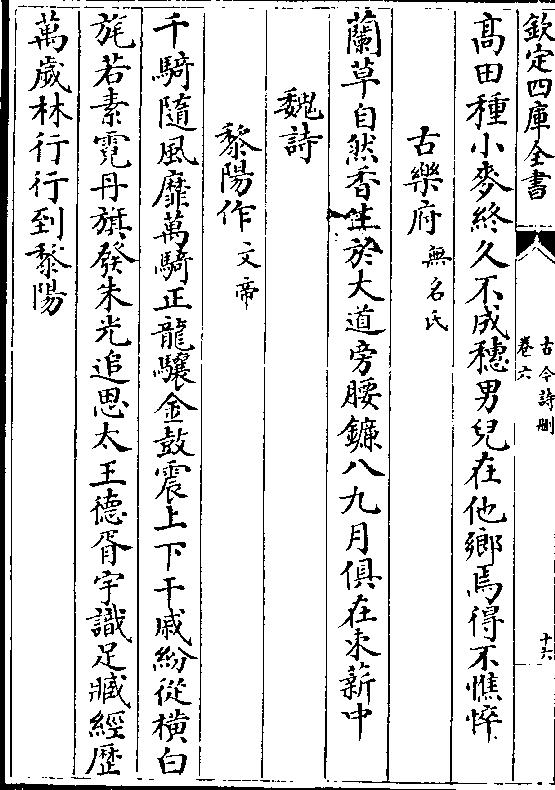 欽定四庫全書
古今詩刪
卷六
十六
高田種小麥終久不成穗男兒在他鄉焉得不憔悴
古樂府無名氏
蘭草自然香生於大道旁腰鎌八九月俱在束薪中
魏詩
黎陽作文帝
千騎隨風靡萬騎正龍驤金鼓震上下干戚紛從橫白
旄若素霓丹旗發朱光追思太王德胥宇識足臧經歴
萬歲林行行到黎陽